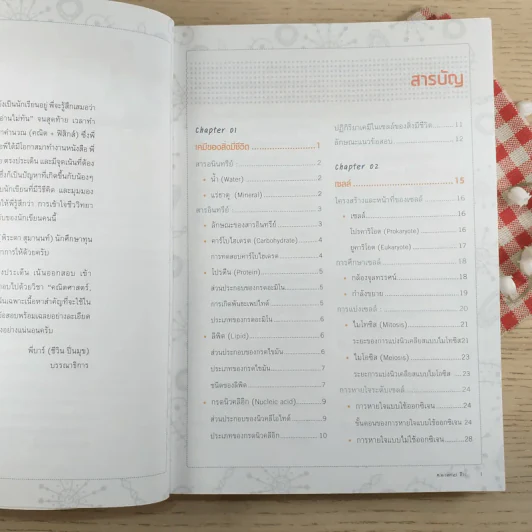 ังเป็นนักเรียนอยู่ พี่จะรู้สึกเสมอว่า
อ่านไม่ทัน" จนสุดท้าย เวลาทำ
าคำนวณ (คณิต + ฟิสิกส์) ซึ่งพี่
พี่ได้มีโอกาสมาทำงานหนังสือ พี่
ตรงประเด็น และมีจุดเน้นที่ต้อง
ซึ่งก็เป็นปัญหาที่เกิดขึ้นกับน้องๆ
นักเรียนที่มีวิธีคิด และมุมมอง
ให้พี่รู้สึกว่า การเข้าใจชีววิทยา
ของนักเรียนคนนี้
พีระดา สุมานนท์) นักศึกษาทุน
าการให้ด้วยครับ
งประเด็น เน้นออกสอบ เข้า
อบไปด้วยวิชา "คณิตศาสตร์,
น้นเฉพาะเนื้อหาสำคัญที่จะใช้ใน
้อสอบพร้อมเฉลยอย่างละเอียด
งอย่างแน่นอนครับ
พี่บาร์ (ชีวิน ปิ่นมุข)
บรรณาธิการ
สารบัญ
Chapter 01
เคมีของสิ่งมีชีวิต 1
สารอนินทรีย์ 2
• น้ำ (Water) 2
• แร่ธาตุ (Mineral) 2
สารอินทรีย์ 3
• ลักษณะของสารอินทรีย์ 3
• คาร์โบไฮเดรต (Carbohydrate) 4
การทดสอบคาร์โบไฮเดรต 4
• โปรตีน (Protein) 5
ส่วนประกอบของกรดอะมิโน 5
การเกิดพันธะเพปไทด์ 5
ประเภทของกรดอะมิโน 6
• ลิพิด (Lipid) 6
ส่วนประกอบของกรดไขมัน 6
ประเภทของกรดไขมัน 7
ชนิดของลิพิด 7
• กรดนิวคลีอิก (Nucleic acid) 9
ส่วนประกอบของนิวคลีโอไทด์ 9
ประเภทของกรดนิวคลีอิก 10
ปฏิกิริยาเคมีในเซลล์ของสิ่งมีชีวิต 11
ลักษณะแนวข้อสอบ 12
Chapter 02
เซลล์ 15
โครงสร้างและหน้าที่ของเซลล์ 16
• เซลล์ 16
โปรคาริโอต (Prokaryote) 16
ยูคาริโอต (Eukaryote) 17
การศึกษาเซลล์ 18
• กล้องจุลทรรศน์ 18
• กำลังขยาย 19
การแบ่งเซลล์ 20
• ไมโทซิส (Mitosis) 21
ระยะของการแบ่งนิวเคลียสแบบไมโทซิส 21
• ไมโอซิส (Meiosis) 23
ระยะการแบ่งนิวเคลียสแบบไมโอซิส 23
การหายใจระดับเซลล์ 24
• การหายใจแบบใช้ออกซิเจน 24
ขั้นตอนของการหายใจแบบใช้ออกซิเจน 24
• การหายใจแบบไม่ใช้ออกซิเจน 28